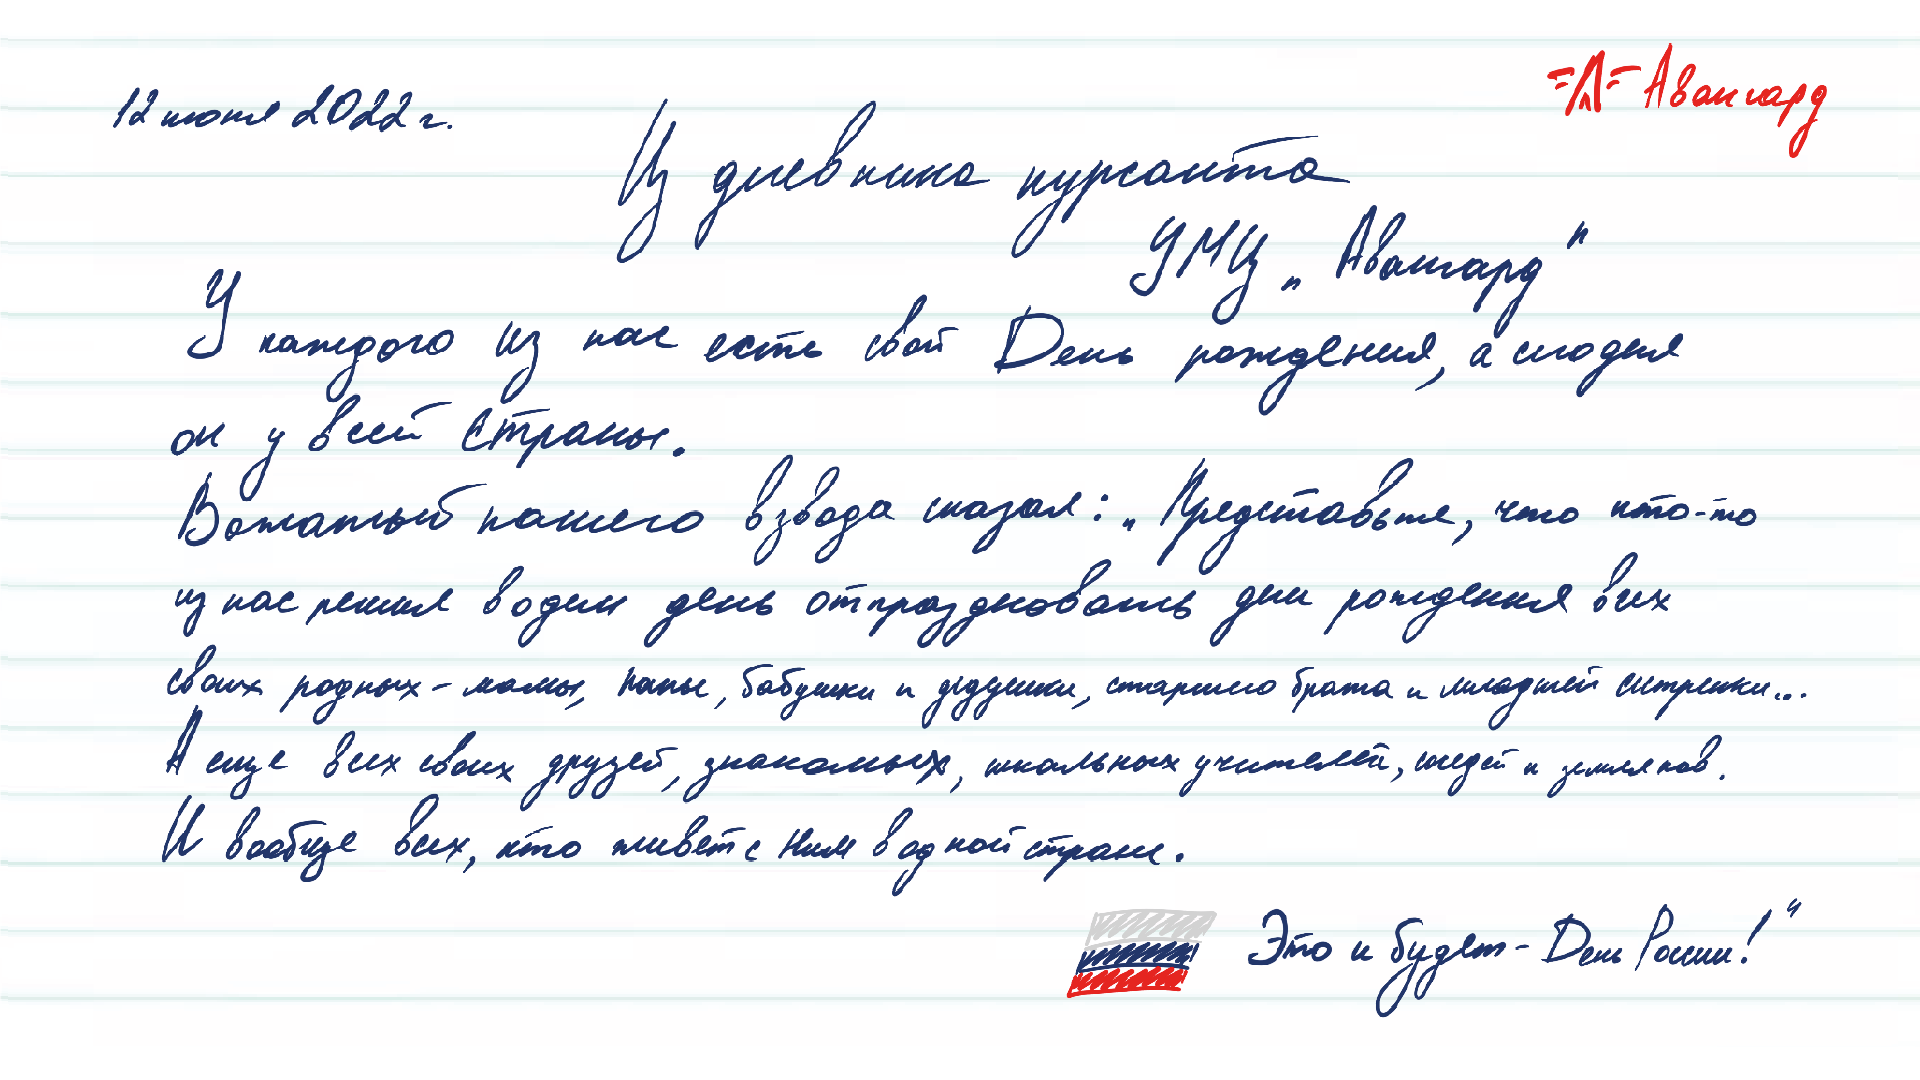 12 июня 2022 г.
-А- Авангард
Из дневника курсанта
УМЦ „Авангард"
У каждого из нас есть свой День рождения, а сегодня
он у всей страны.
Вожатый нашего взвода сказал: „Представьте, что кто-то
из нас решил в один день отпраздновать дни рождения всех
своих родных - мамы, папы, бабушки и дедушки, старшего брата и младшей сестренки...
А еще всех своих друзей, знакомых, школьных учителей, соседей и земляков.
И вообще всех, кто живет с ним в одной стране.
Это и будет - День России!"